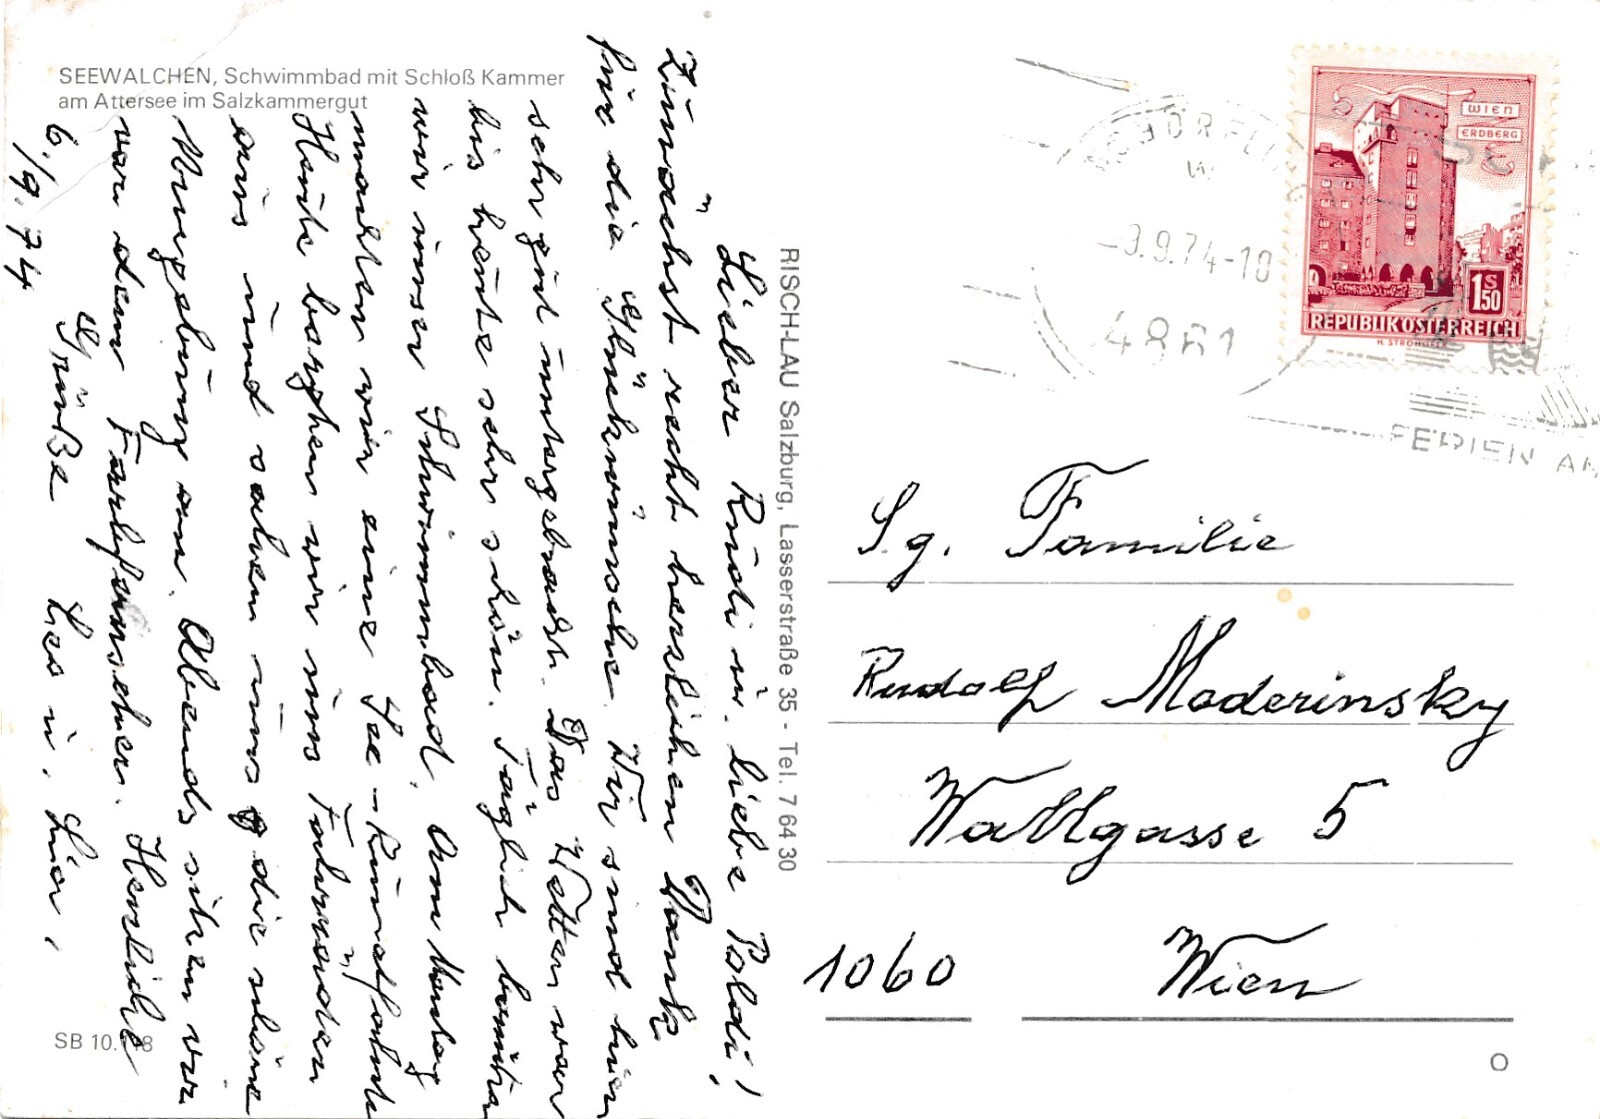 SEEWALCHEN, Schwimmbad mit Schloß Kammer
am Attersee im Salzkammergut
Lieber Rudi u. liebe Poldi!
Zunächst recht herzlichen Dank
für die Glückwünsche. Wir sind hier
sehr gut untergebracht. Das Wetter war
bis heute sehr schön. Täglich benützen
wir unser Schwimmbad. Am Montag
machten wir eine See-Rundfahrt
Heute borgten wir uns Fahrräder
aus und sahen uns die schöne
Umgebung an. Abends sitzen wir
vor dem Farbfernseher. Herzliche
Grüße Leo u.
6./9.74
RISCH-LAU Salzburg, Lasserstraße 35 - Tel. 7 64 30
SB 10.148
WIEN
ERDBERG
1 S 50
REPUBLIK ÖSTERREICH
-9.9.74-18
4861
FERIEN AM
Sg. Familie
Rudolf Moderinsky
Wallgasse 5
1060 Wien